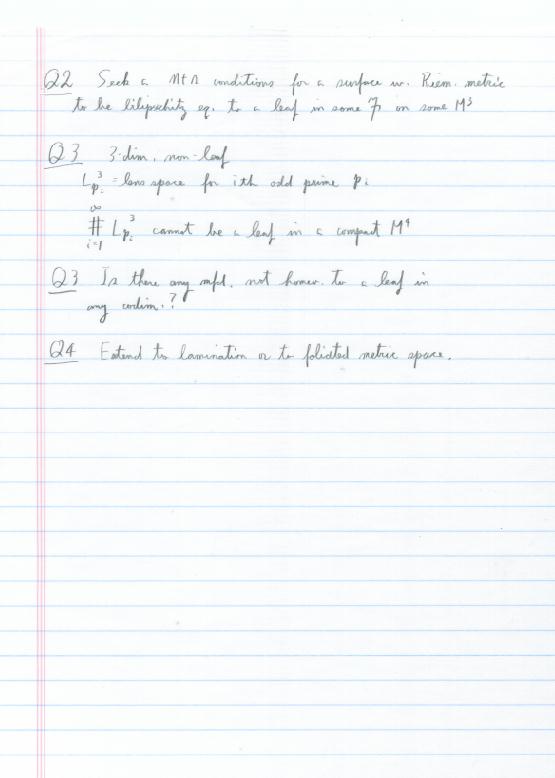 Q2 Seek a N+A conditions for a surface w. Riem. metric
to be lilipschitz eq. to a leaf in some F on some M³
Q3 3-dim. non-leaf
L³_{p_i} = lens space for ith odd prime p_i
∞
# L³_{p_i} cannot be a leaf in a compact M⁴
i=1
Q3 Is there any mfd. not homeo. to a leaf in
any codim.?
Q4 Extend to lamination or to foliated metric space.